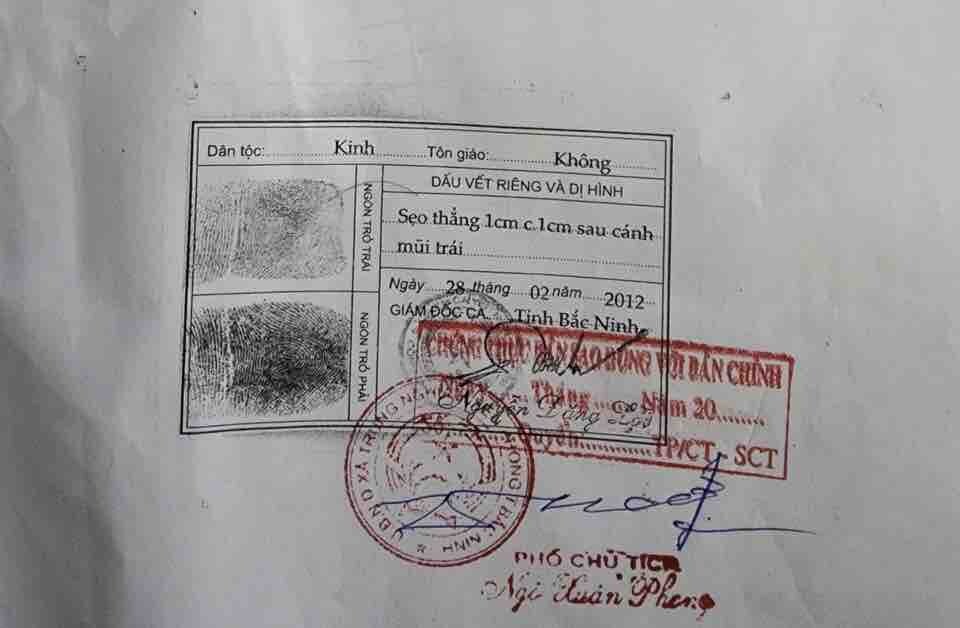 Dân tộc: Kinh Tôn giáo: Không
NGÓN TRỎ TRÁI
DẤU VẾT RIÊNG VÀ DỊ HÌNH
Sẹo thẳng 1cm c.1cm sau cánh
mũi trái
Ngày 28 tháng 02 năm 2012
GIÁM ĐỐC CA Tỉnh Bắc Ninh
NGÓN TRỎ PHẢI
CHỨNG THỰC BẢN SAO ĐÚNG VỚI BẢN CHÍNH
Ngày Tháng Năm 20
Quyển TP/CT - SCT
U.B.N.D XÃ TRUNG BẮC NINH
PHÓ CHỦ TỊCH
Ngô Xuân Phong